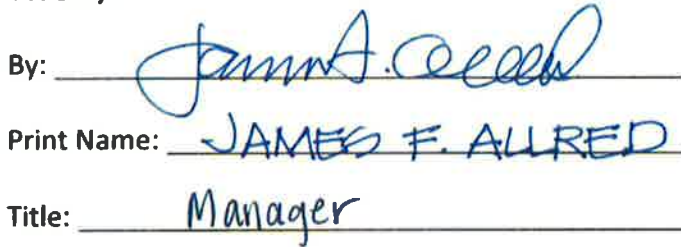 By: James F. Allred
Print Name: JAMES F. ALLRED
Title: Manager